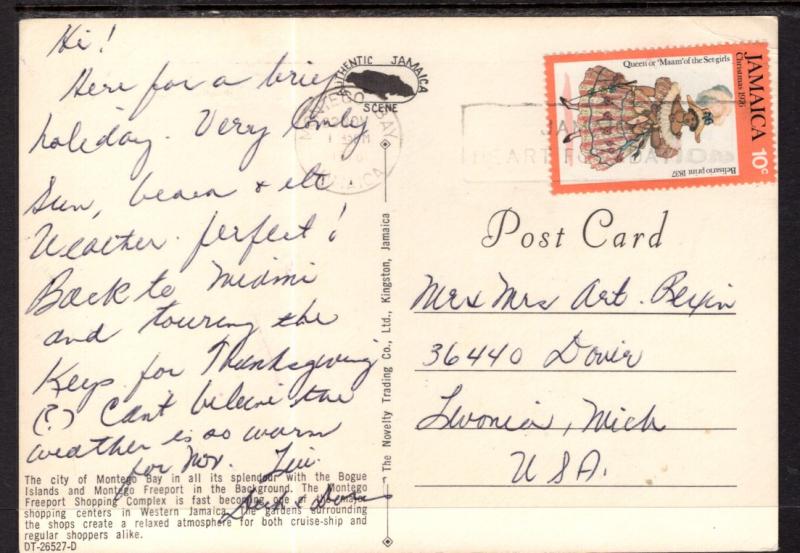 Hi!
Here for a brief
holiday. Very lovely
Sun, beach & etc
Weather perfect!
Back to Miami
and touring the
Keys for Thanksgiving
(?) Can't believe the
weather is so warm
for Nov.
The city of Montego Bay in all its splendour with the Bogue
Islands and Montego Freeport in the Background. The Montego
Freeport Shopping Complex is fast becoming one of the major
shopping centers in Western Jamaica. The gardens surrounding
the shops create a relaxed atmosphere for both cruise-ship and
regular shoppers alike.
DT-26527-D
AUTHENTIC JAMAICA
SCENE
MONTEGO BAY
JAMAICA
The Novelty Trading Co., Ltd., Kingston, Jamaica
Queen or 'Maam' of the Set-girls
Christmas 1976
JAMAICA
10c
Belisario print 1837
Post Card
Mr & Mrs Art.
36440 Dover
Livonia, Mich
USA.